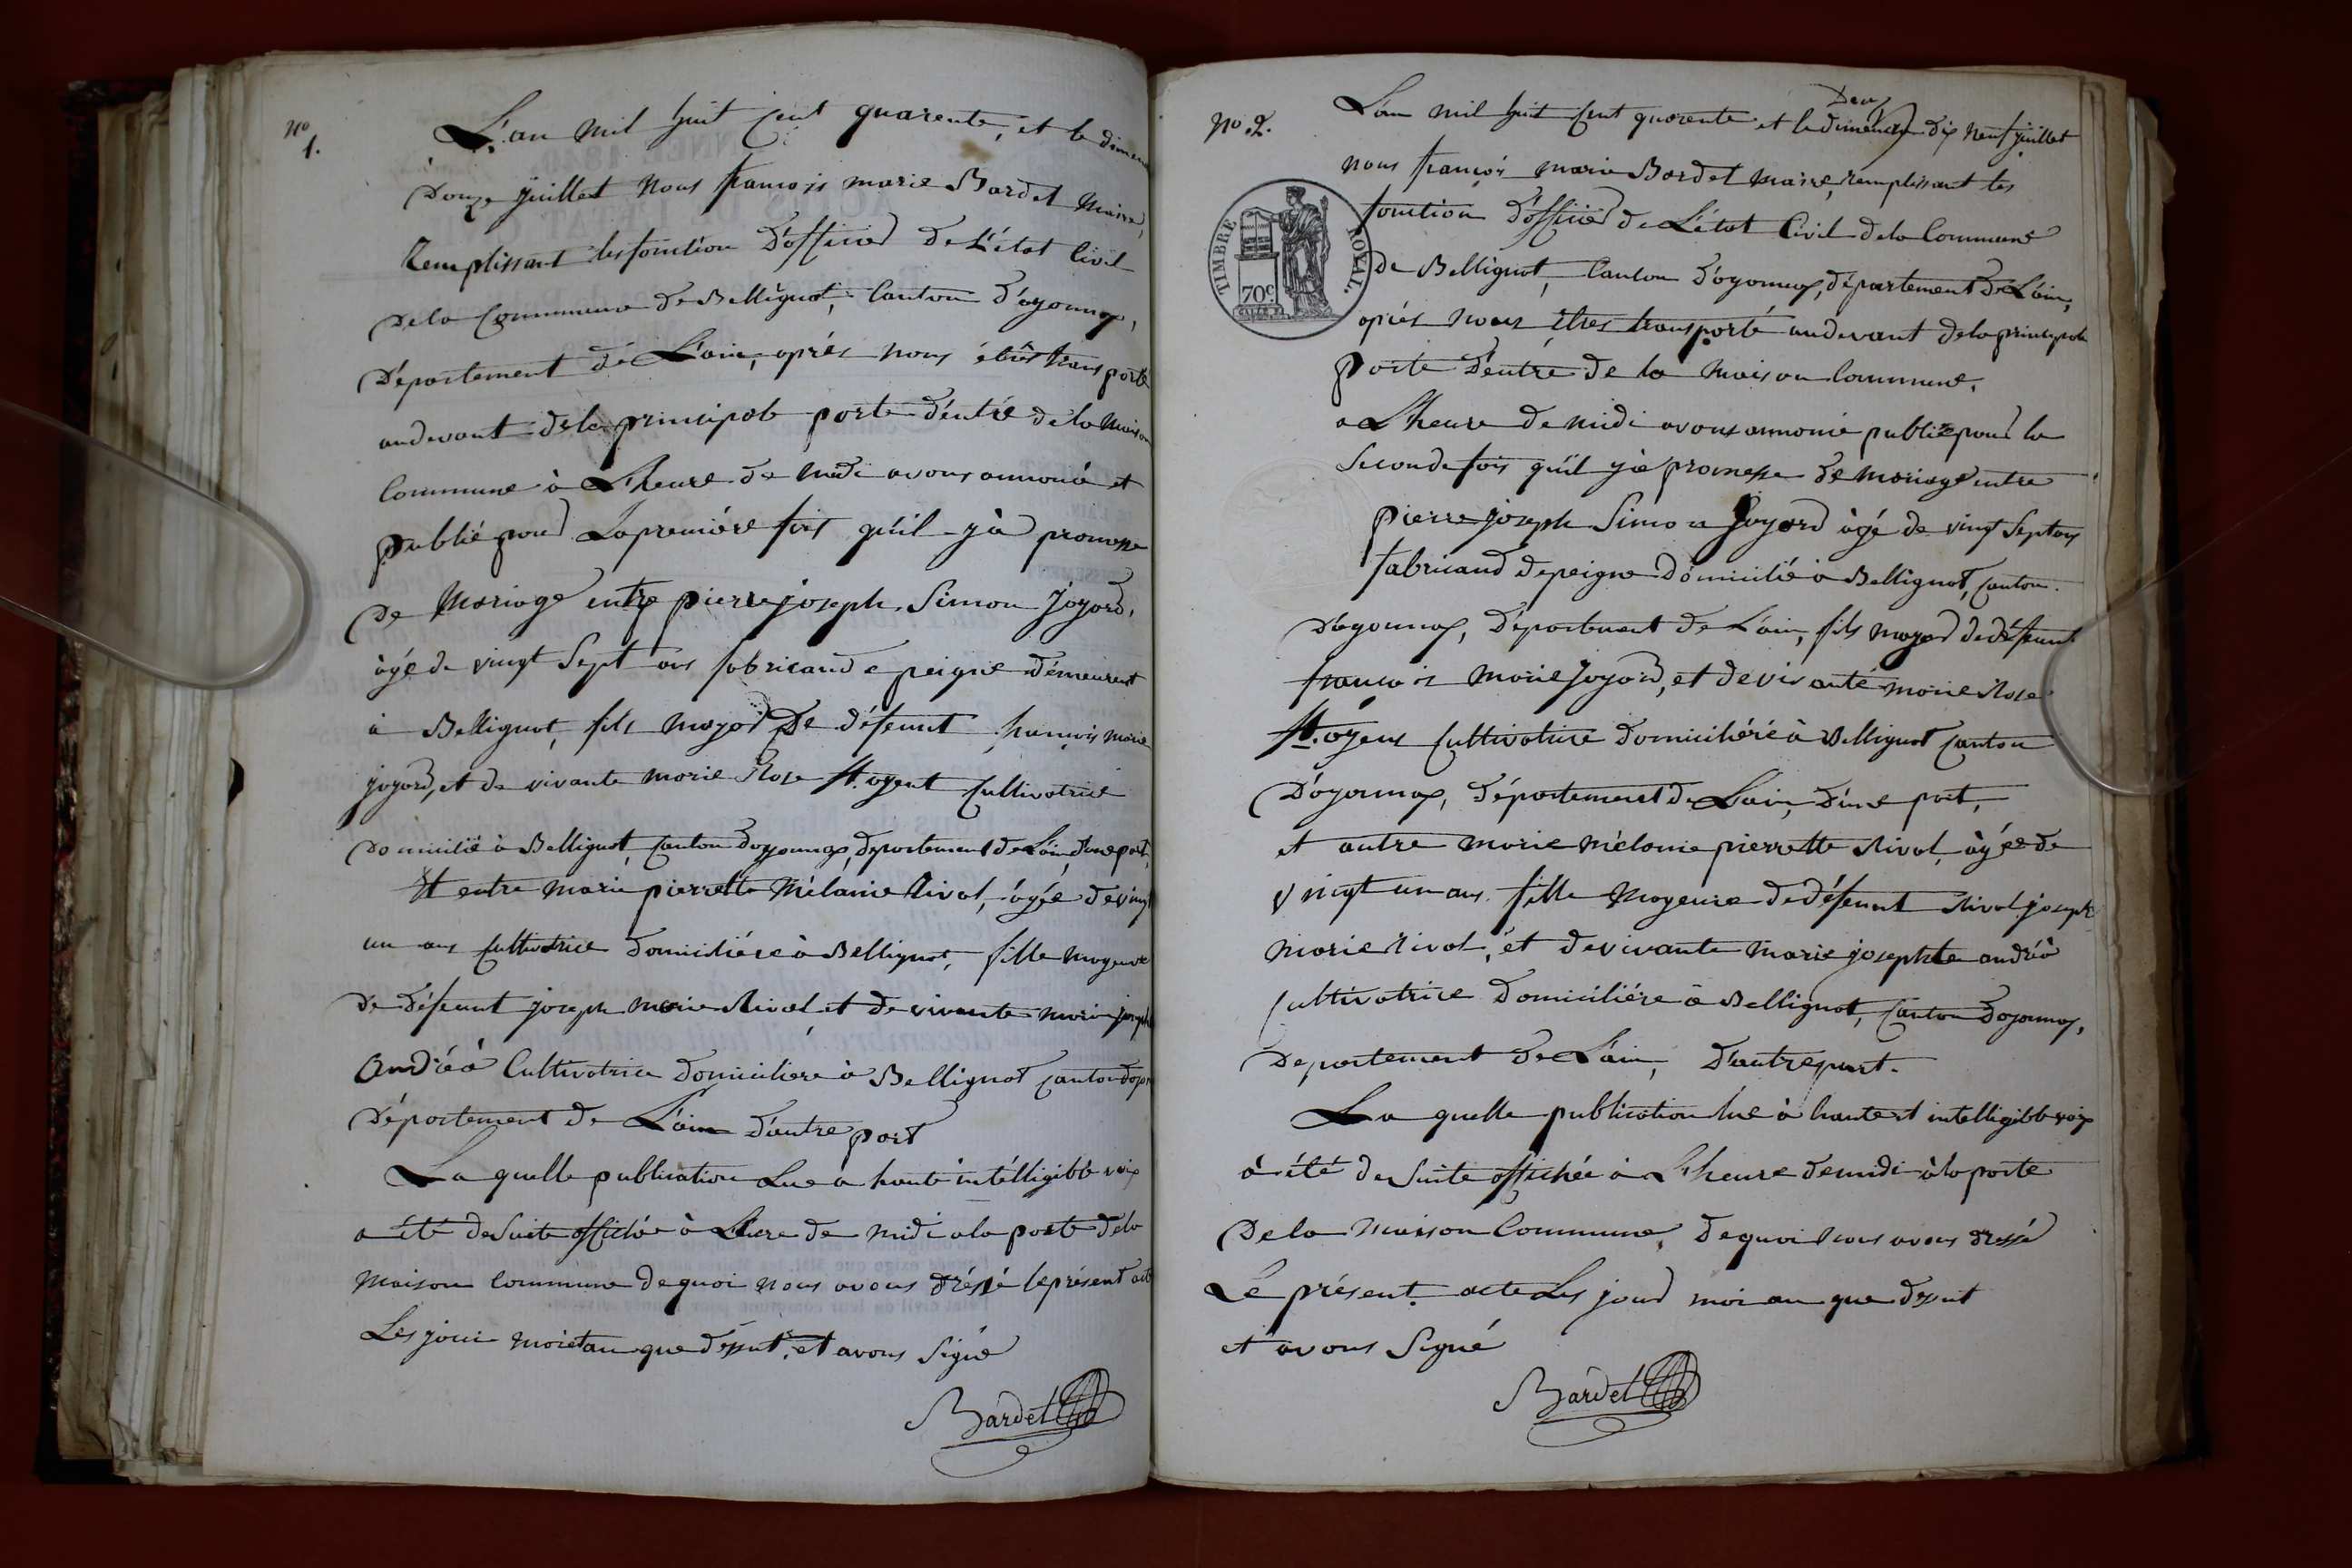 No 1.
L'an mil huit Cent quarente, et le dimen
Douze juillet nous françois marie Bardet Maire,
Remplissant les fonction D'officier de L'état Civil
De la Commune de Bellignot, Canton d'oyonnax,
Département de L'ain, aprés nous êtes transporté
au devant de la principale porte d'entré de la maison
Commune à L'heure de midi avons annoncé et
publié pour La premiére fois qu'il y à promesse
De Mariage entre pierre joseph Simon Joyard,
àgé de vingt Sept ans fabricand e peigne démeurent
à Bellignot, fils mayor De défeunt françois marie
joyard, et de vivante marie Rose St. oyent Cultivatrice
Domicilié à Bellignot, Canton d'oyonnax, département de L'ain, d'une part,
Et entre marie pierrette Mélanie Rivol, àgée de vingt
un ans Cultivatrice domiciliére à Bellignot, fille mayeure
De défeunt joseph marie Rivol et de vivante marie joseph
Andréà Cultivatrice domiciliere à Bellignot Canton d'oyo
Département de L'ain d'autre part
La quelle publication Lue à haute intélligible voix
a été de Suite affichée à L'heure de midi à la porte de la
Maison Commune de quoi nous avons dréssé le présent acte
Les jour mois et an que déssut, et avons Signé
Bardet
No. 2.
L'an mil huit Cent quarente et le dimenche Deux dix neuf juillet
nous françois marie Bardet maire, remplissant les
fonction d'officier de L'état Civil de la Commune
de Bellignot, Canton d'oyonnax, département de L'ain,
aprés nous êtres transporté au devant de la principale
porte d'entré de la maison Commune,
a L'heure de midi avons annoncé publié pour la
Seconde fois qu'il y à promesse de mariage entre
pierre joseph Simon Joyard àgé de vingt Sept ans
fabricand de peigne domicilié à Bellignot, Canton
d'oyonnax, département de L'ain, fils mayor de défeunt
françois marie joyard, et de vivante marie Rose
St. oyens Cultivatrice domiciliére à Bellignot Canton
D'oyonnax, département de L'ain, d'une part,
et autre marie mélanie pierrette Rivol, àgée de
vingt un ans fille mayeure de défeunt Rivol joseph
marie Rivol, et de vivante marie josephte andréà
Cultivatrice domiciliére à Bellignot, Canton d'oyonnax,
Departement de L'ain, d'autre part.
La quelle publication lue à haute et intelligible voix
à été de Suite affichée à L'heure de midi à la porte
De la maison Commune, de quoi nous avons dréssé
Le présent acte Les jour mois an que dessut
et avons Signé
Bardet
TIMBRE ROYAL.
70c.